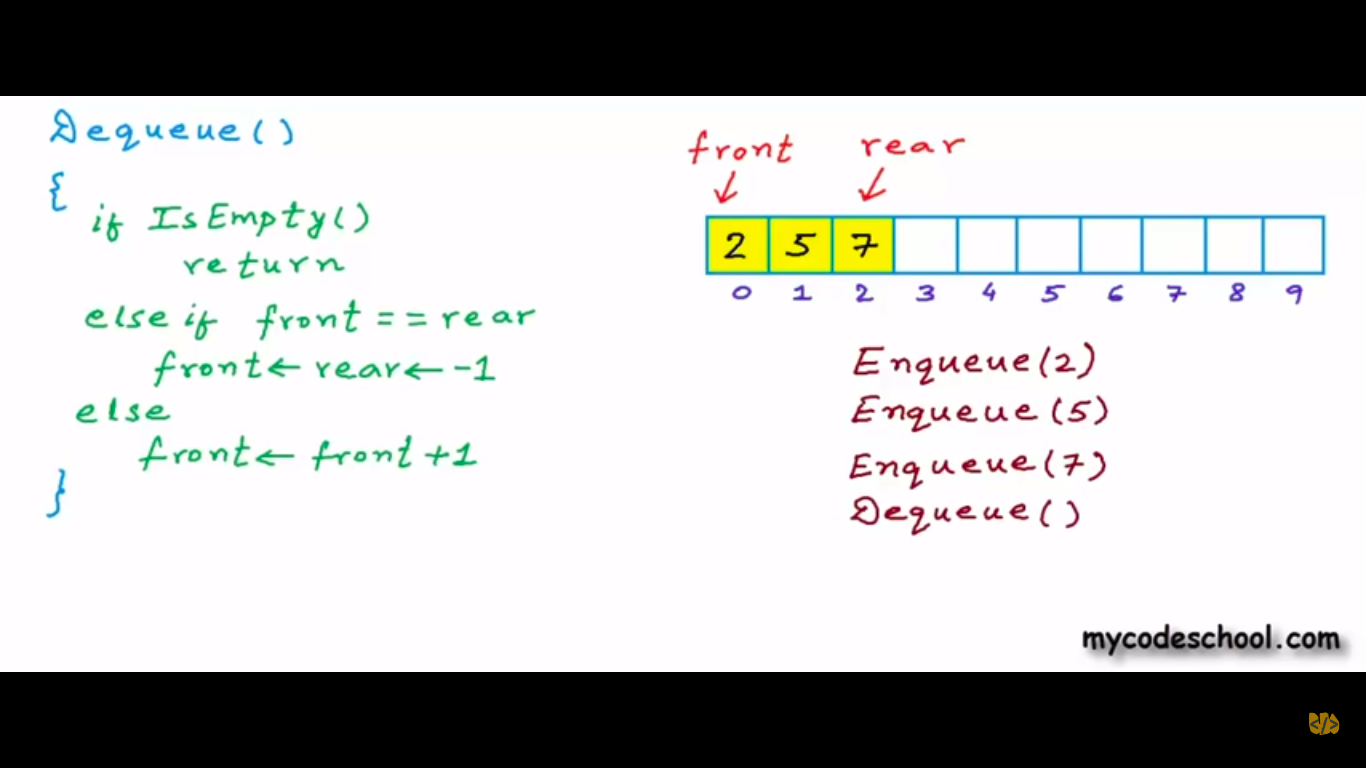 Dequeue()
{
if IsEmpty()
return
else if front == rear
front ← rear ← -1
else
front ← front +1
}
front rear
2 5 7
0 1 2 3 4 5 6 7 8 9
Enqueue(2)
Enqueue(5)
Enqueue(7)
Dequeue()
mycodeschool.com